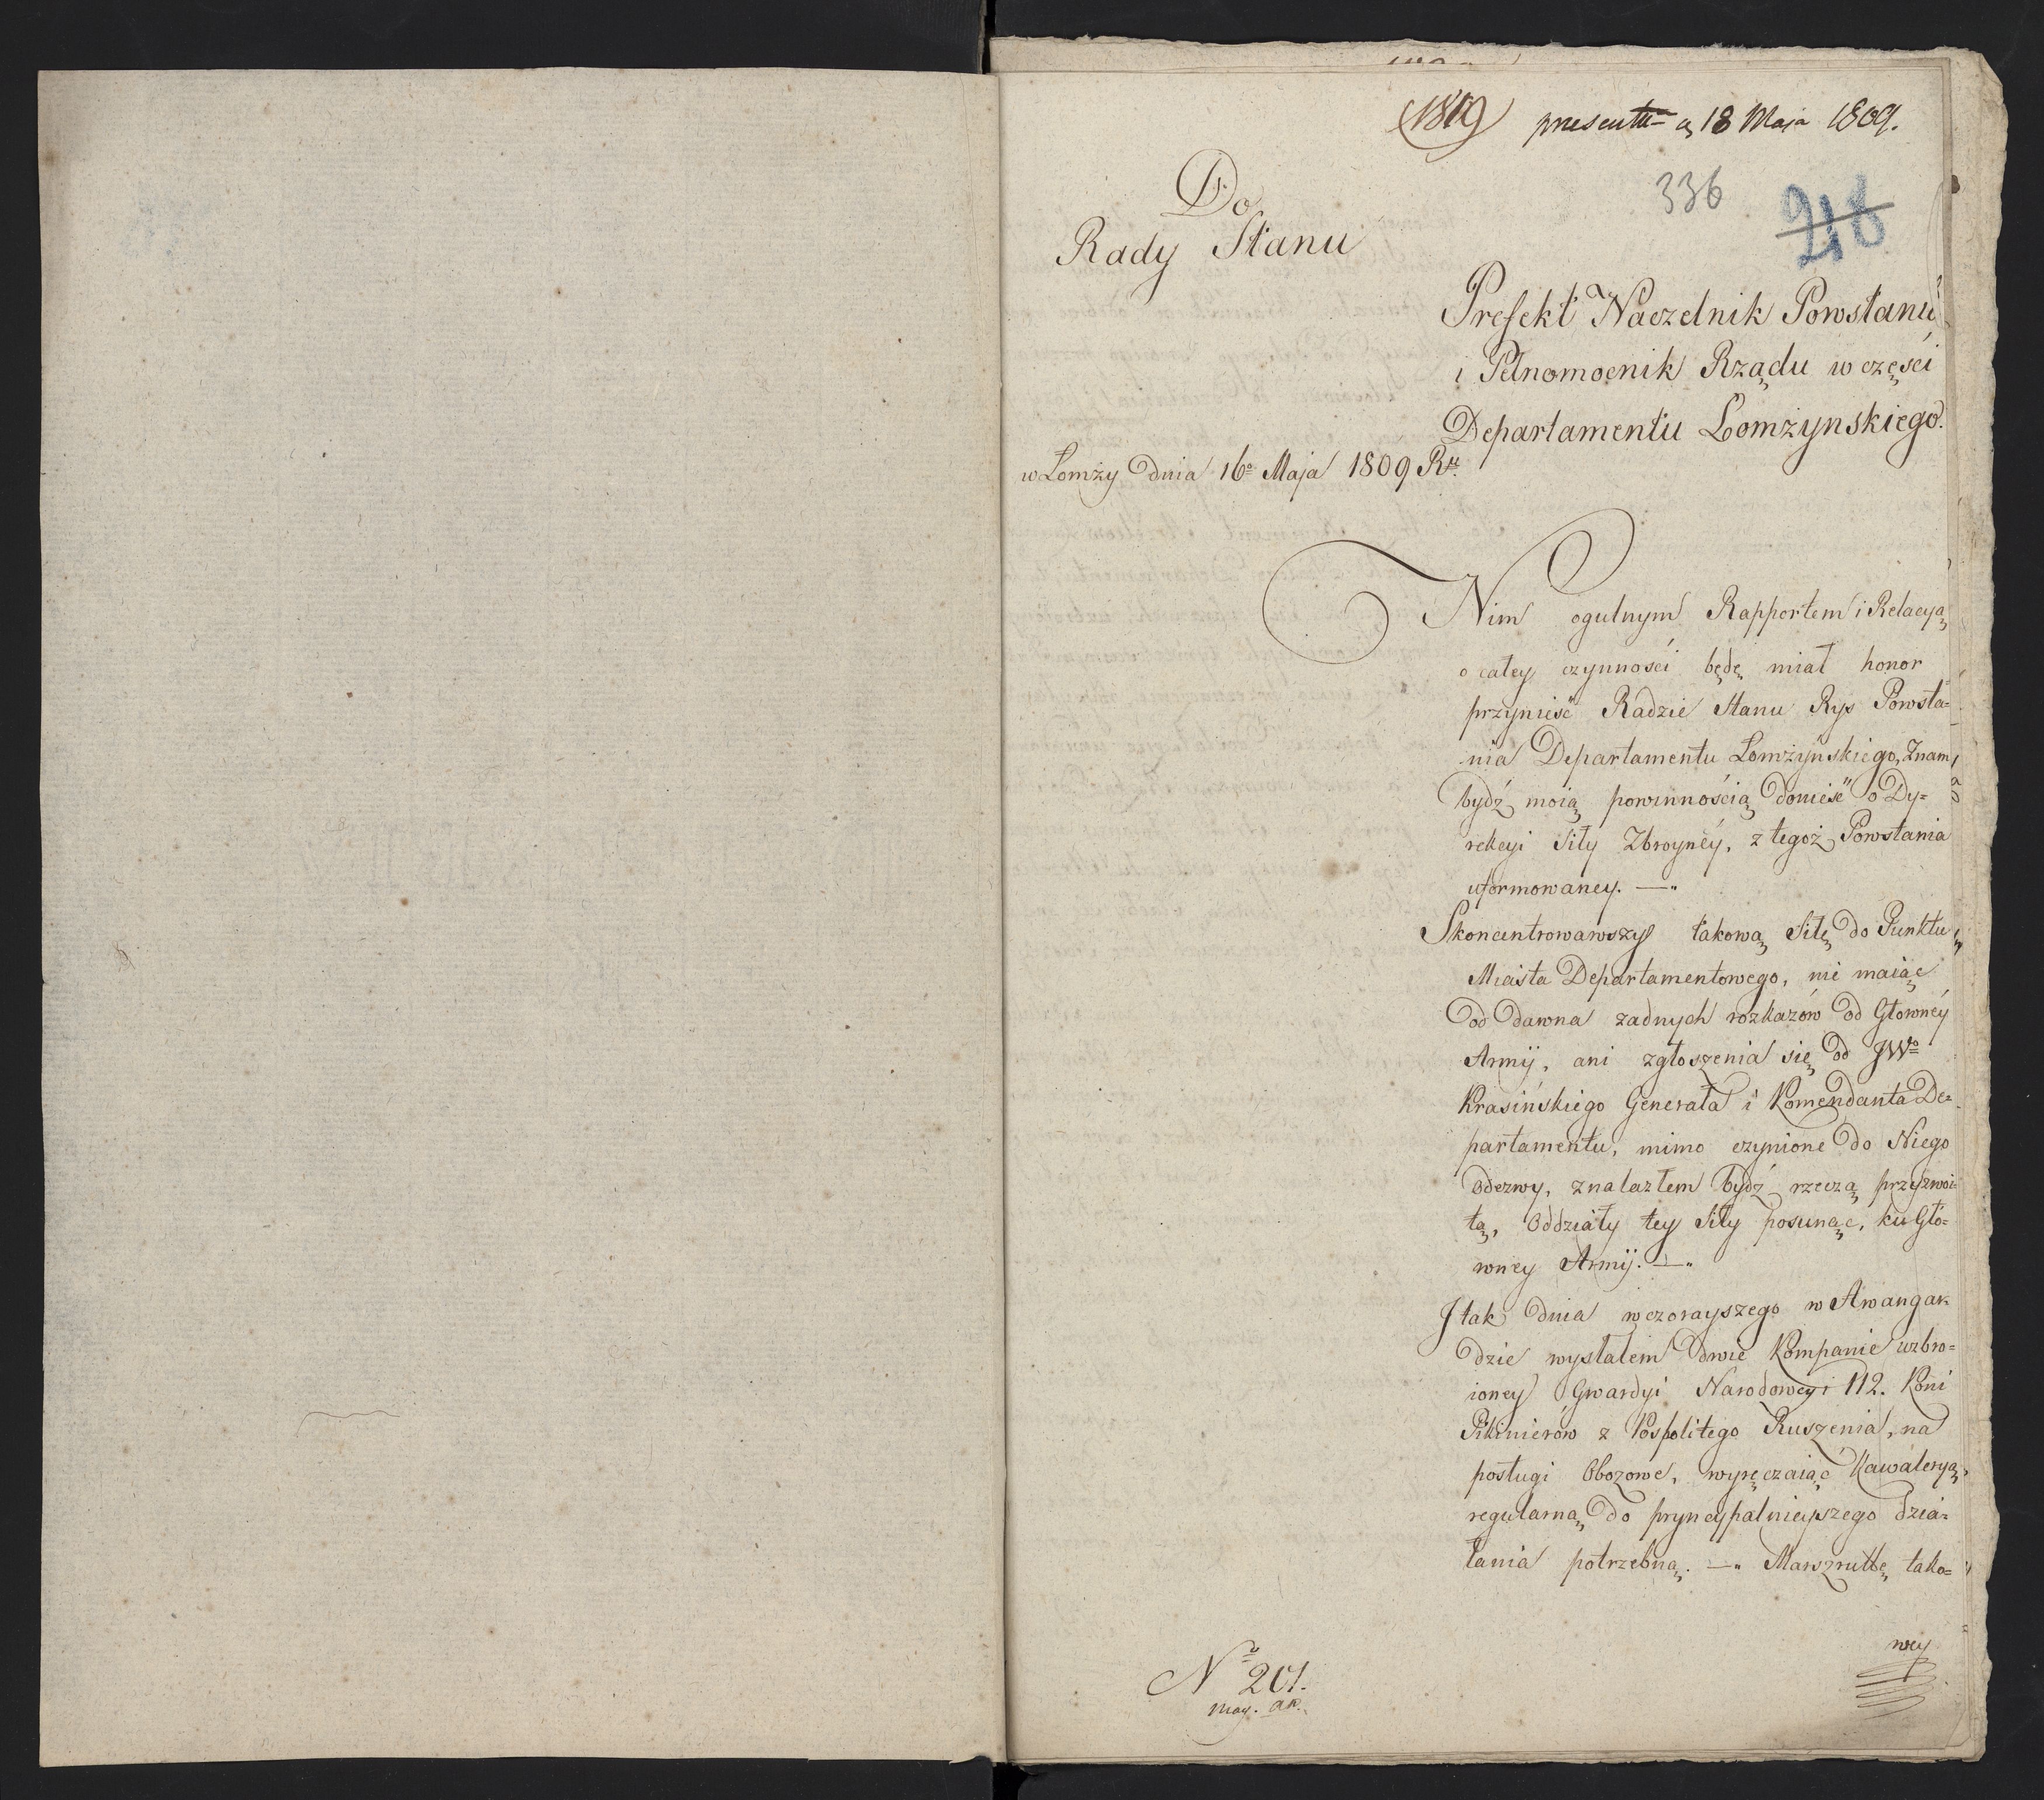 (1819) presentu= ą 18 Maja 1809.
336
218
Do
Rady Stanu
Prefekt Naczelnik Powstaniu
i Pełnomocnik Rządu w części
Departamentu Łomżynskiego.
w Łomży Dnia 16º Maja 1809 Rº
Nim ogulnym Rapportem i Relacyą
o całey czynności będę miał honor
przynieść Radzie Stanu Rys Powsta=
nia Departamentu Łomżyńskiego, Znam
bydź moią powinnością donieść o Dy=
rekcyi Siły Zbroyney, z tegoż Powstania
uformowaney. —„
Skoncentrowawszy takową Siłę do Punktu
Miasta Departamentowego, nie maiąc
od dawna żadnych rozkazów od Głowney
Armij, ani zgłoszenia się od JWº
Krasińskiego Generała i Komendanta De=
partamentu, mimo czynione do Niego
Odezwy, znalazłem bydź rzeczą przyzwoi=
tą, Oddziały tey Siły posunąć, ku Gło=
wney Armij. —„
I tak Dnia wczorayszego w Awangar=
dzie wysłałem dwie Kompanie uzbro=
ioney Gwardyi Narodowey i 112. Koni
Pikinierów z Pospolitego Ruszenia, na
posługi Obozowe, wyręczaiąc Kawaleryą
regularną do pryncypalnieyszego dzia=
łania potrzebną. —„ Marszrutę tako=
wey
Nº 201.
may. ar.